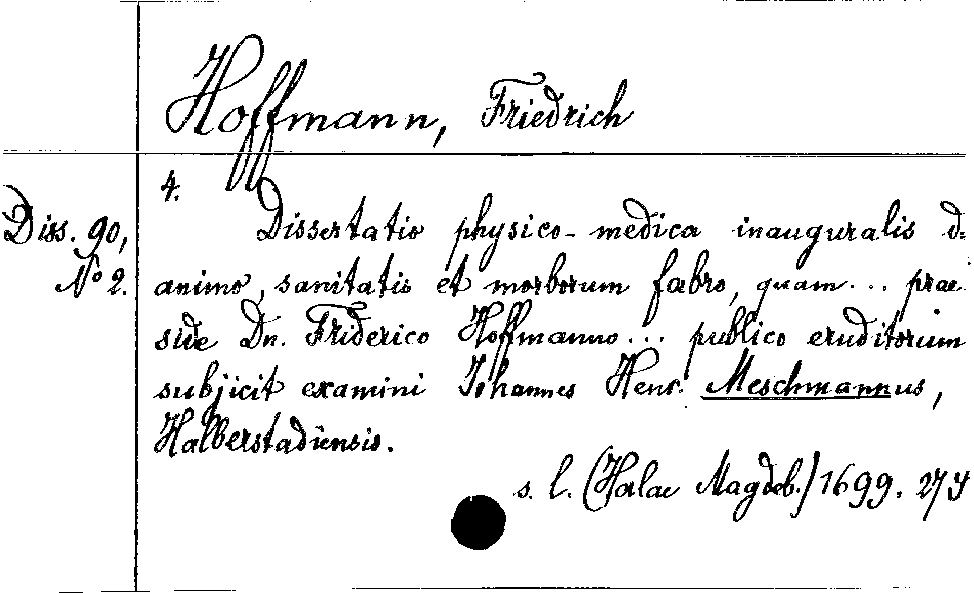 Hoffmann, Friedrich
4.
Diss. 90,
No 2.
Dissertatio physico-medica inauguralis d
animo, sanitatis et morborum fabro, quam... prae
side Dn. Friderico Hoffmanno... publico eruditorum
subjicit examini Johannes Henr. Meschmannus,
Halberstadiensis.
s. l. (Halae Magdeb.) 1699. 27